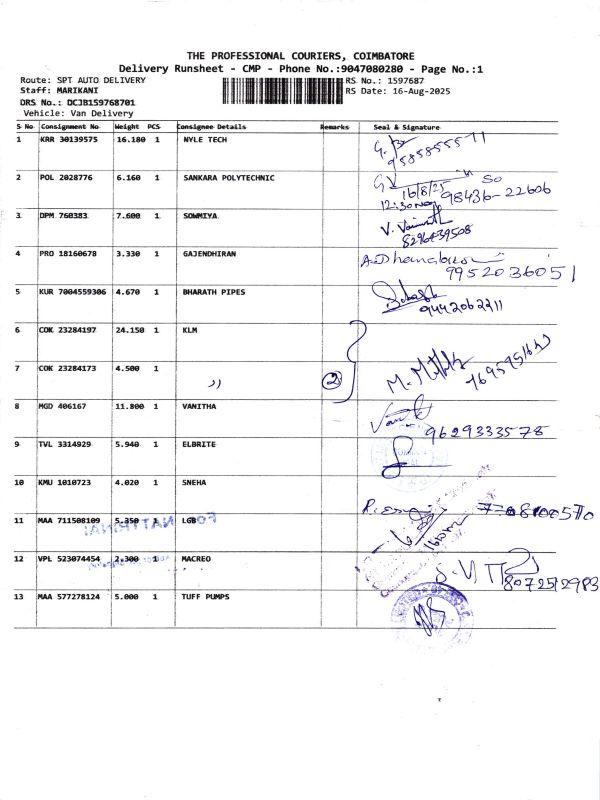 THE PROFESSIONAL COURIERS, COIMBATORE
Delivery Runsheet - CMP - Phone No.:9047080280 - Page No.:1
Route: SPT AUTO DELIVERY RS No.: 1597687
Staff: MARIKANI RS Date: 16-Aug-2025
DRS No.: DCJB159768701
Vehicle: Van Delivery
S No Consignment No Weight PCS Consignee Details Remarks Seal & Signature
1 KRR 30139575 16.180 1 NYLE TECH
2 POL 2028776 6.160 1 SANKARA POLYTECHNIC
16/8/25
98436-22606
3 DPM 760383 7.600 1 SOWMIYA
4 PRO 18160678 3.330 1 GAJENDHIRAN
9952036051
5 KUR 7004559306 4.670 1 BHARATH PIPES
9442062211
6 COK 23284197 24.150 1 KLM
7 COK 23284173 4.500 1 ,, 2
8 MGD 406167 11.800 1 VANITHA
9629333578
9 TVL 3314929 5.940 1 ELBRITE
10 KMU 1010723 4.020 1 SNEHA
11 MAA 711508109 5.350 1 LGB
12 VPL 523074454 2.300 1 MACREO
8072512983
13 MAA 577278124 5.000 1 TUFF PUMPS